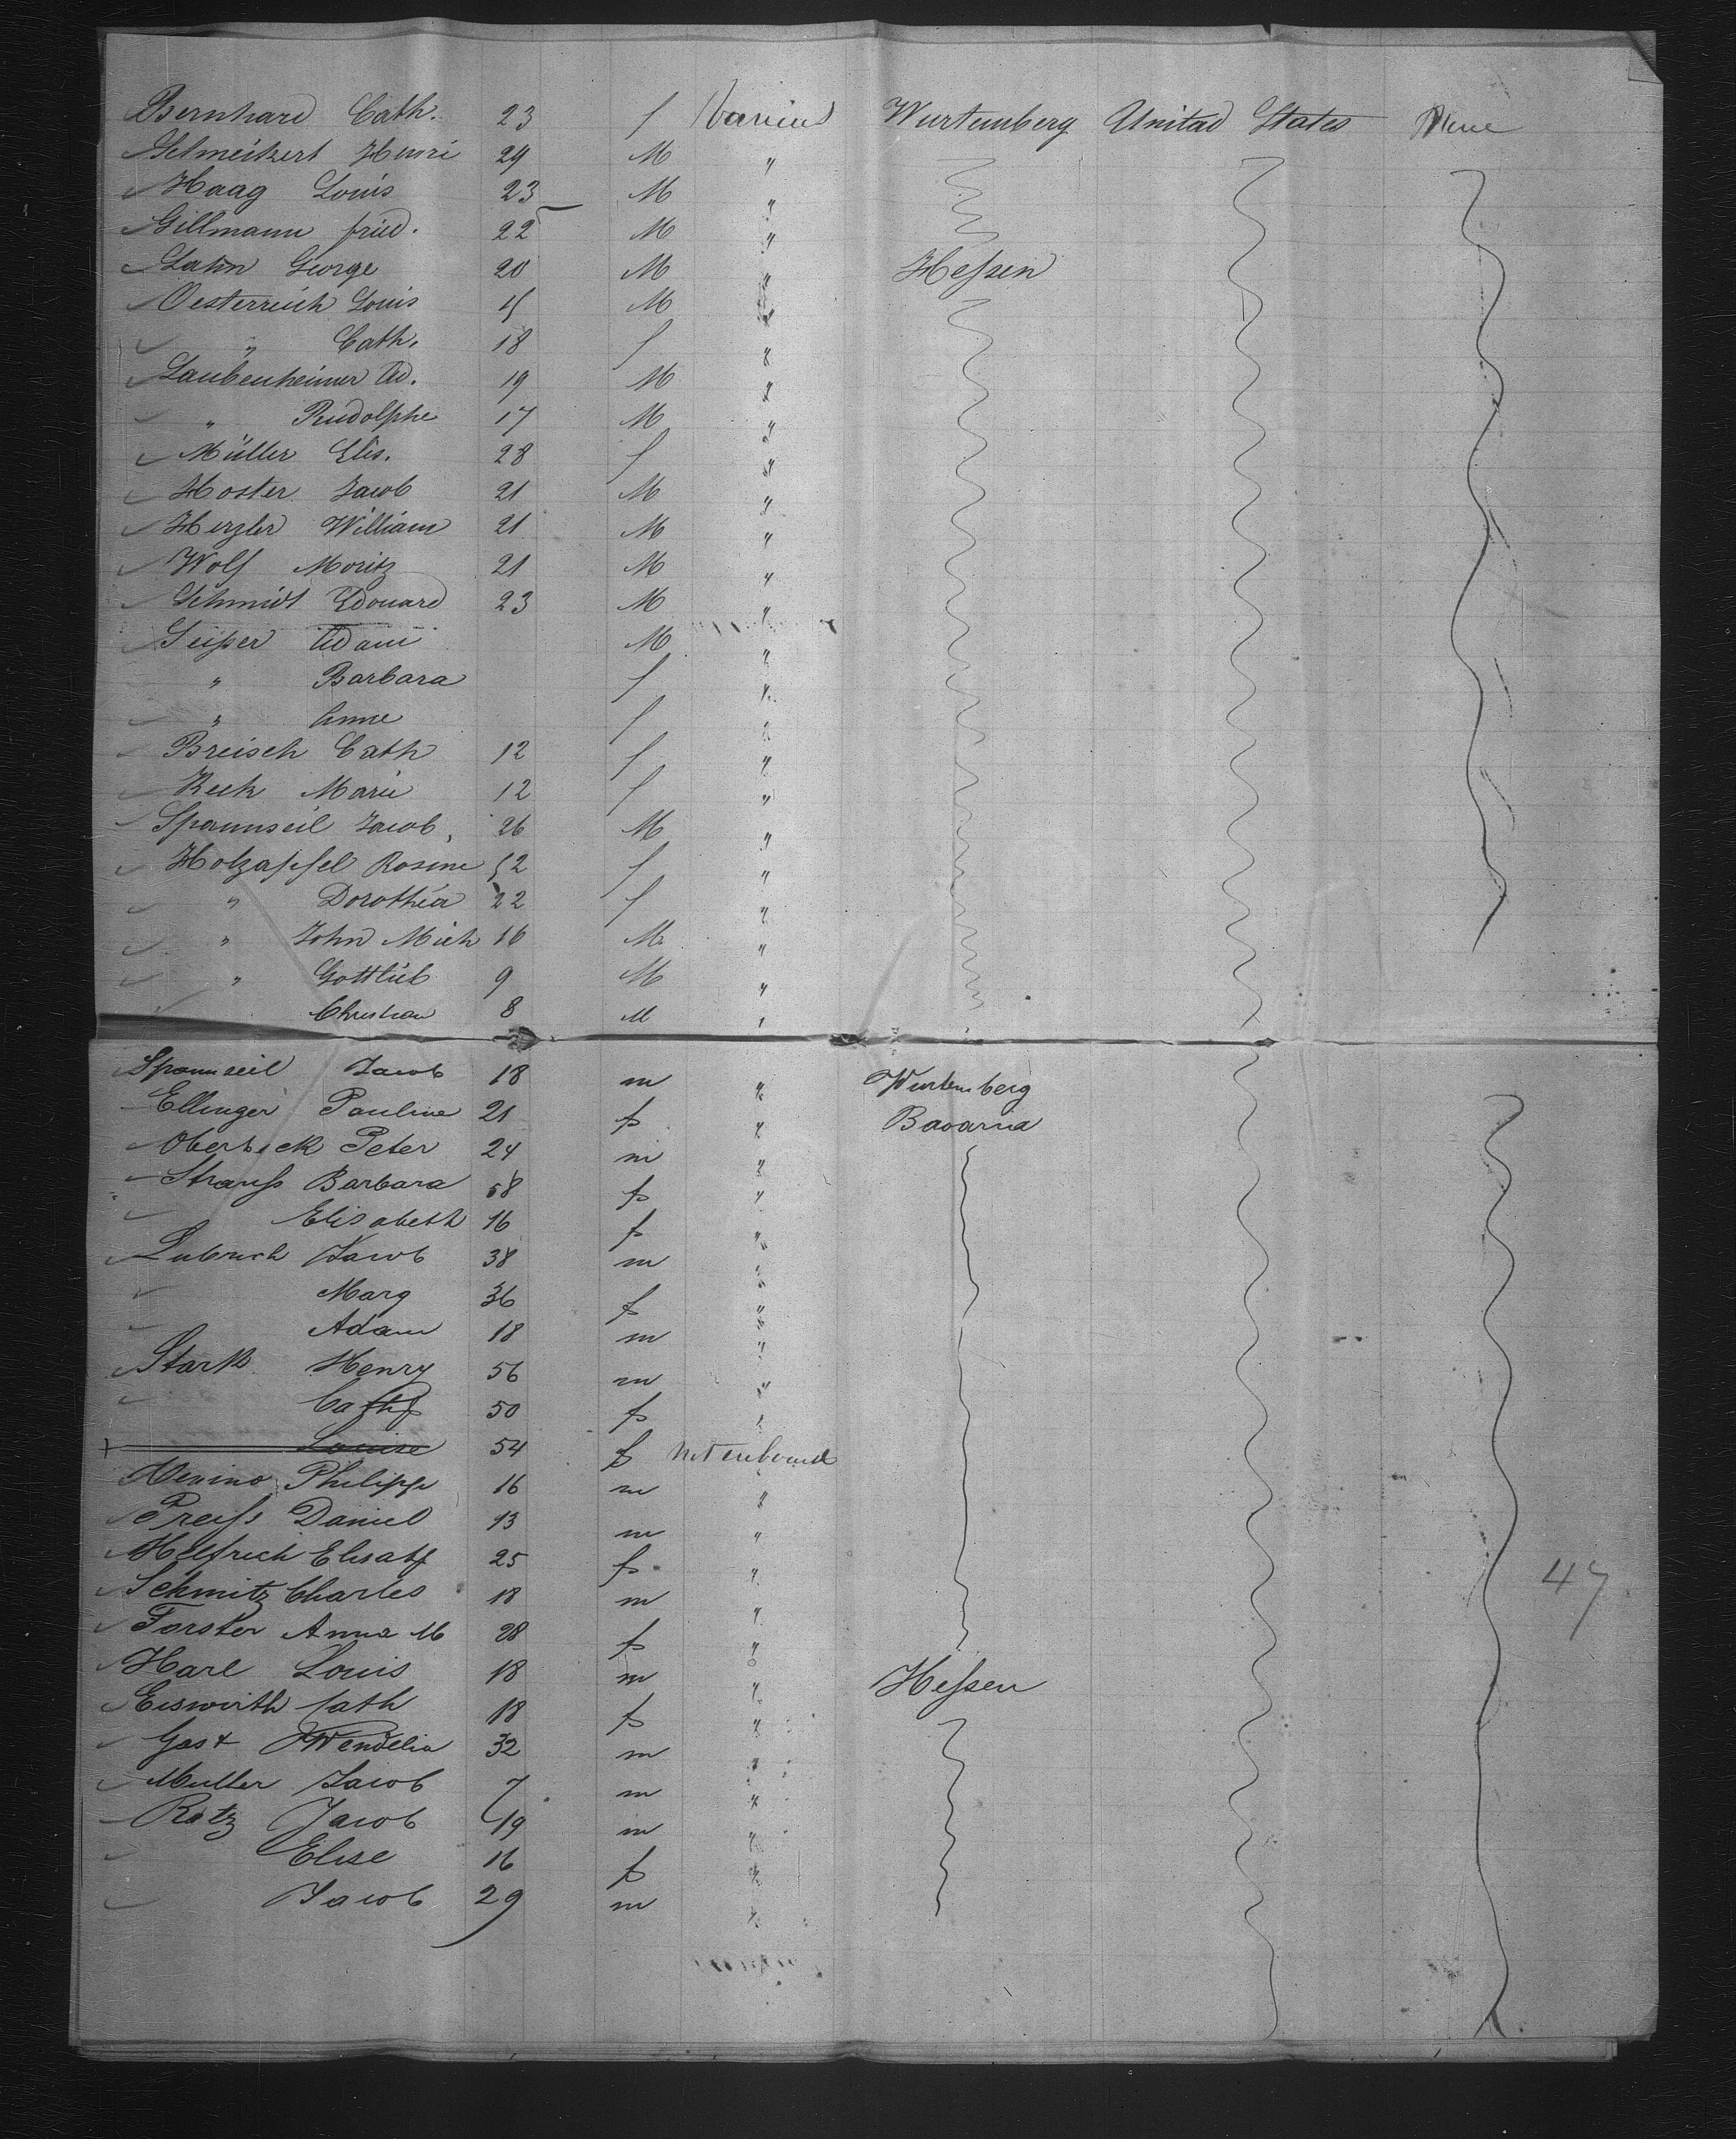 Bernhard Cath. 23 f Various Wurtemberg United States None
Schmeitzert Henri 29 M "
Haag Louis 23 M "
Gillmann fried. 22 M "
Lahn George 20 M " Hessen
Oesterreich Louis 15 M "
" Cath. 18 f "
Laubenheimer Ad. 19 M "
" Rudolphe 17 M "
Müller Elis. 28 f "
Hoster Jacob 21 M "
Herzler William 21 M "
Wolf Moritz 21 M "
Schmidt Edouard 23 M "
Adam M "
" Barbara f "
" Anne f "
Breisch Cath 12 f "
Keck Marie 12 f "
Spannseil Jacob 26 M "
Holzapfel Rosine 52 f "
" Dorothéa 22 f "
" John Mich 16 M "
" Gottlieb 9 M "
Christian 8 M "
Spannseil Jacob 18 m " Wurtemberg
Ellinger Pauline 21 f " Bavaria
Oberbeck Peter 24 m "
Strauss Barbara 58 f "
Elisabeth 16 f "
Lubrich Jacob 38 m "
Marg 36 f "
Adam 18 m "
Stark Henry 56 m "
Cath 50 f "
Louise 54 f not onboard
Philipp 16 m "
Preiss Daniel 13 m "
Helfrich Elisab 25 f "
Schmitz Charles 18 m " 47
Forster Anna M 28 f "
Harl Louis 18 m " Hessen
Eiswirth Cath 18 f "
Gast Wendelin 32 m "
Muller Jacob 7 m "
Ratz Jacob 49 m "
Elise 16 f "
Jacob 29 m "